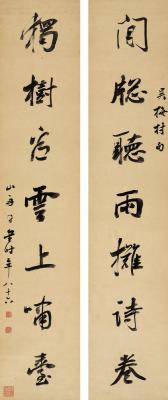 閒牕聽雨攤詩卷
吳梅村句
獨樹看雲上嘯臺
山舟同書時年八十六